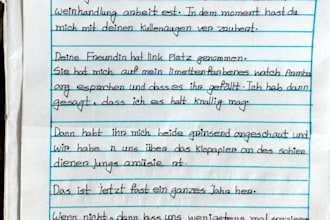 weinhandlung anbeit est. In dem moment hast du
mich mit deinen Kullenaugen ver zaubert.
Deine Freundin hat link Platz genommen.
Sie hat mich auf mein limettenfarbenes watch Armba
arg esprochen und dass es ihr gefällt. Ich hab dann
gesagt, dass ich es halt knallig mag.
Dann habt Ihr mich beide grinsend angeschaut und
wir habe n uns über das Klopapier an des schien
dienen Jungs amüsie rt.
Das ist jetzt fast ein ganzes Jahr her.
Wenn nicht, dann lass uns wenigstens mal spazieren